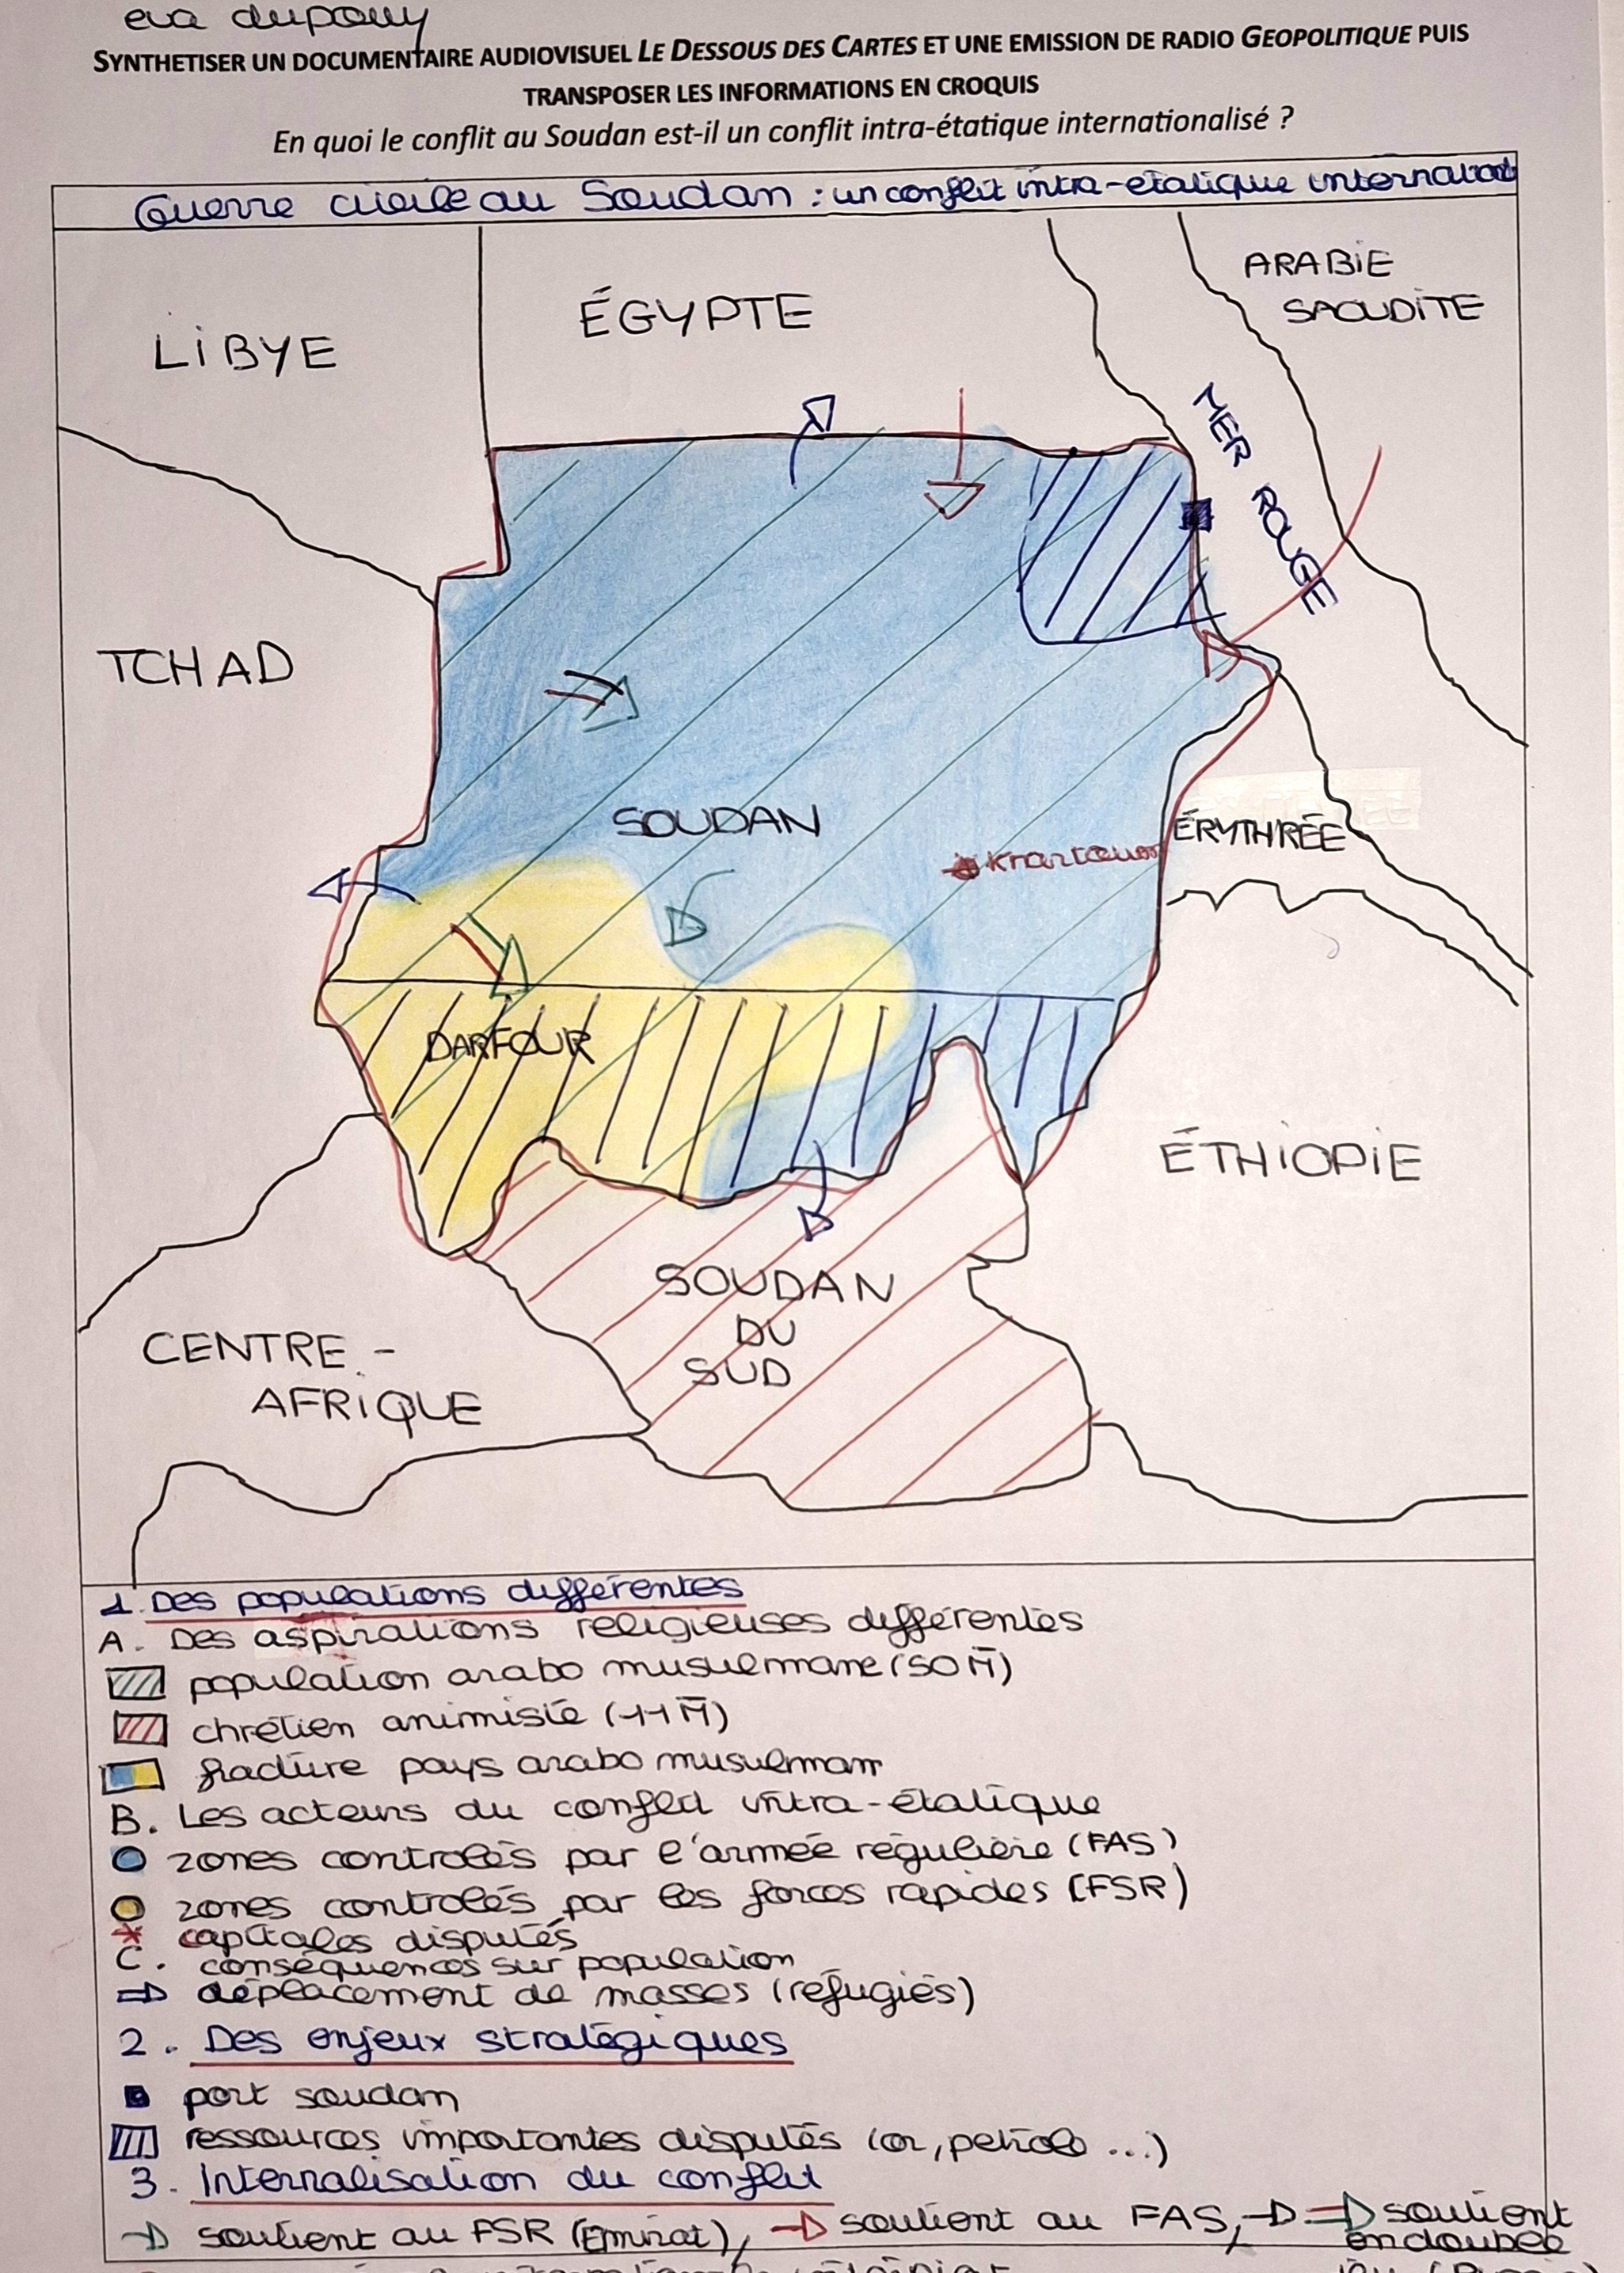 eva dupouy
SYNTHETISER UN DOCUMENTAIRE AUDIOVISUEL LE DESSOUS DES CARTES ET UNE EMISSION DE RADIO GEOPOLITIQUE PUIS
TRANSPOSER LES INFORMATIONS EN CROQUIS
En quoi le conflit au Soudan est-il un conflit intra-étatique internationalisé ?
Guerre civile au Soudan : un conflit intra-etatique
ARABIE
SAOUDITE
ÉGYPTE
LIBYE
MER ROUGE
TCHAD
SOUDAN
ÉRYTHRÉE
Khartoum
DARFOUR
ÉTHIOPIE
SOUDAN
DU
SUD
CENTRE-
AFRIQUE
1. Des populations différentes
A. Des aspirations religieuses différentes
population arabo musulmane (50 M)
chrétien animiste (11 M)
fracture pays arabo musulman
B. Les acteurs du conflit intra-étatique
zones controlés par l'armée régulière (FAS)
zones controlés par les forces rapides (FSR)
capitales disputés
C. conséquences sur population
déplacement de masses (réfugiés)
2. Des enjeux stratégiques
port soudan
ressources importantes disputés (or, petrole ...)
3. Internalisation du conflit
soutient au FSR (Emirat), soutient au FAS, soutient
en double